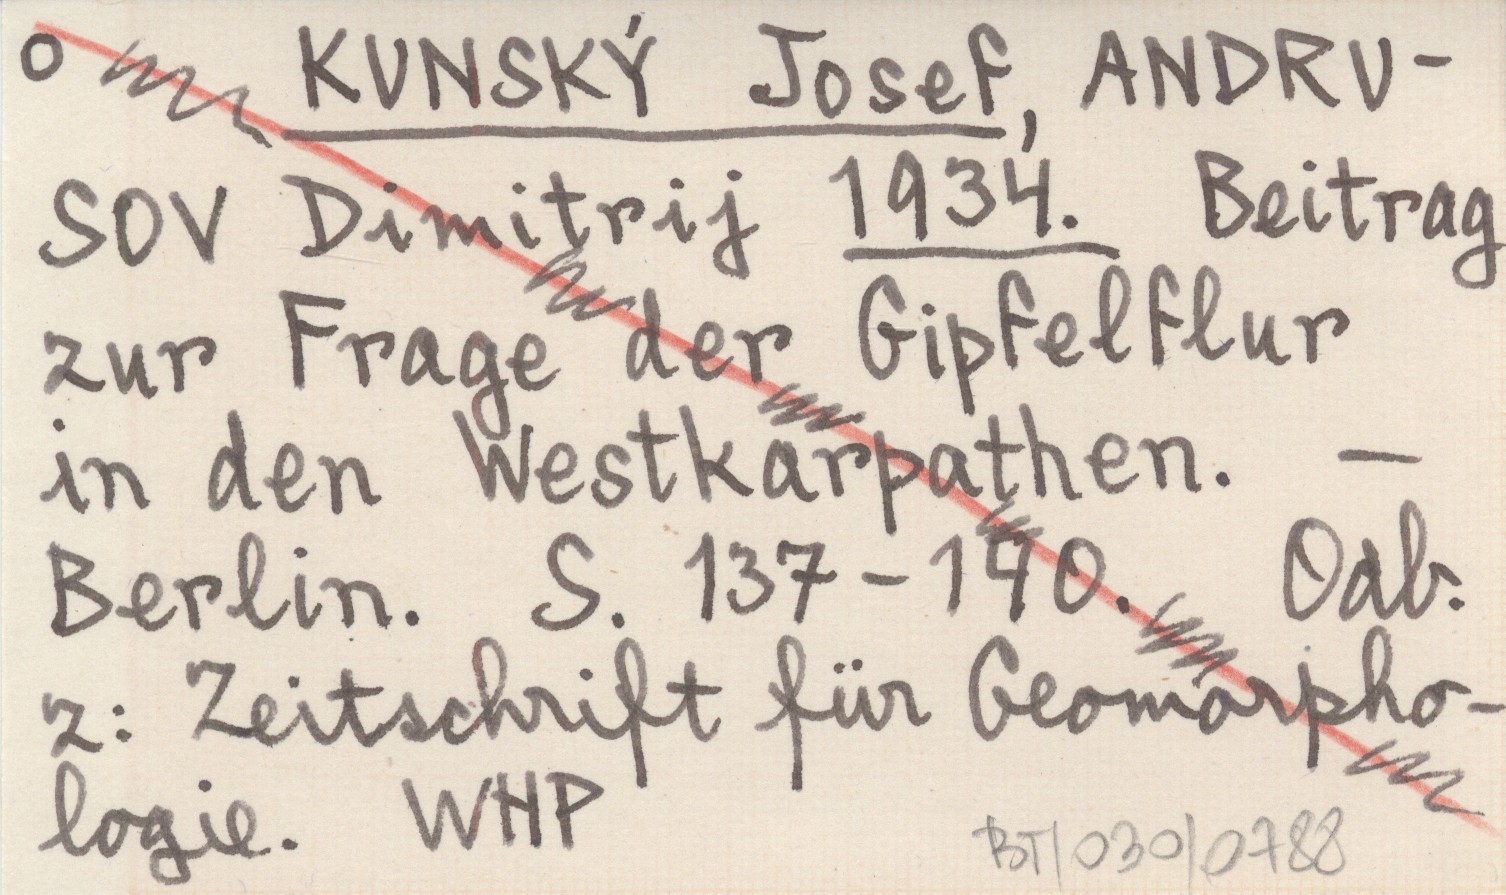 o KUNSKÝ Josef, ANDRU-
SOV Dimitrij 1934. Beitrag
zur Frage der Gipfelflur
in den Westkarpathen. —
Berlin. S. 137-140. Odb.
z: Zeitschrift für Geomorpho-
logie. WHP
BT/030/0788